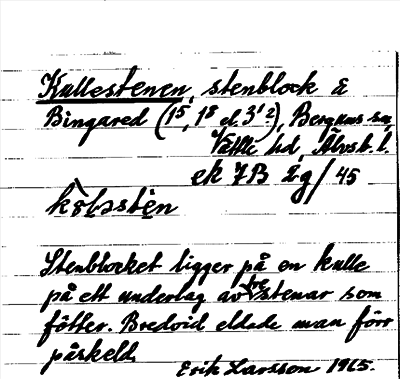 Kullestenen, stenblock å
Bingared (1⁵, 1⁸ el. 3¹²), Bergums sn
Vättle hd, Älvsb. l.
ek 7B 2g/45
Stenblocket ligger på en kulle
på ett underlag av tre stenar som
fötter. Bredvid eldade man förr
påskeld.
Erik Larsson 1965.